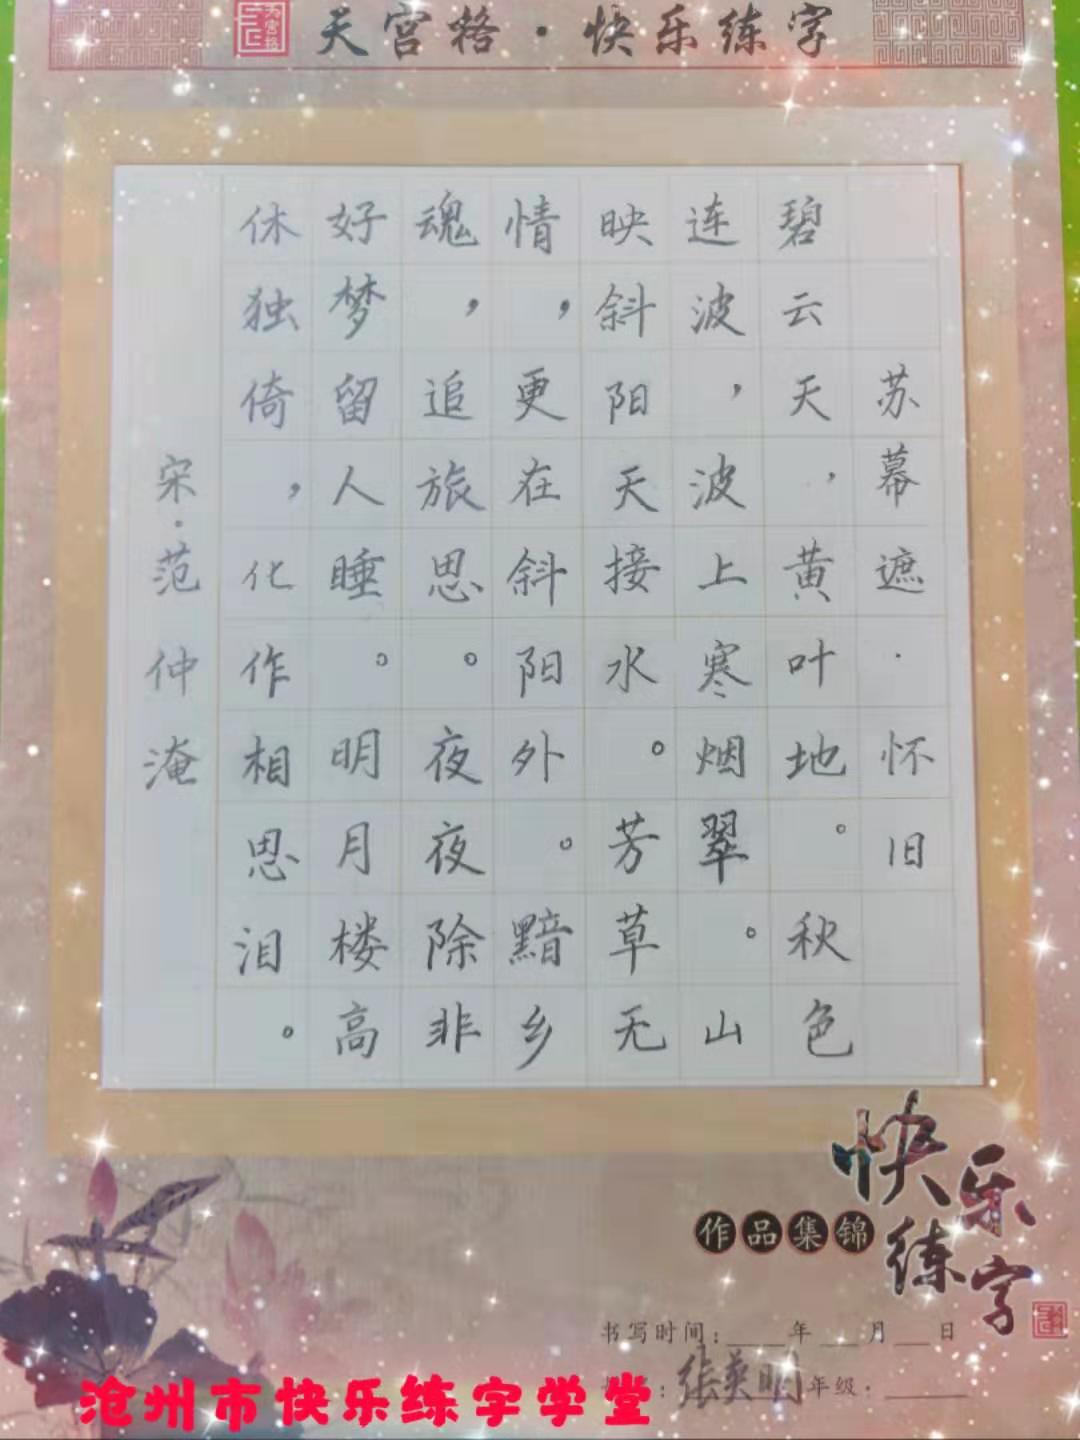 天宫格·快乐练字
苏幕遮·怀旧
碧云天，黄叶地。秋色
连波，波上寒烟翠。山
映斜阳天接水。芳草无
情，更在斜阳外。黯乡
魂，追旅思。夜夜除非
好梦留人睡。明月楼高
休独倚，化作相思泪。
宋·范仲淹
快乐练字
作品集锦
书写时间：____年___月___日
年级：______
沧州市快乐练字学堂